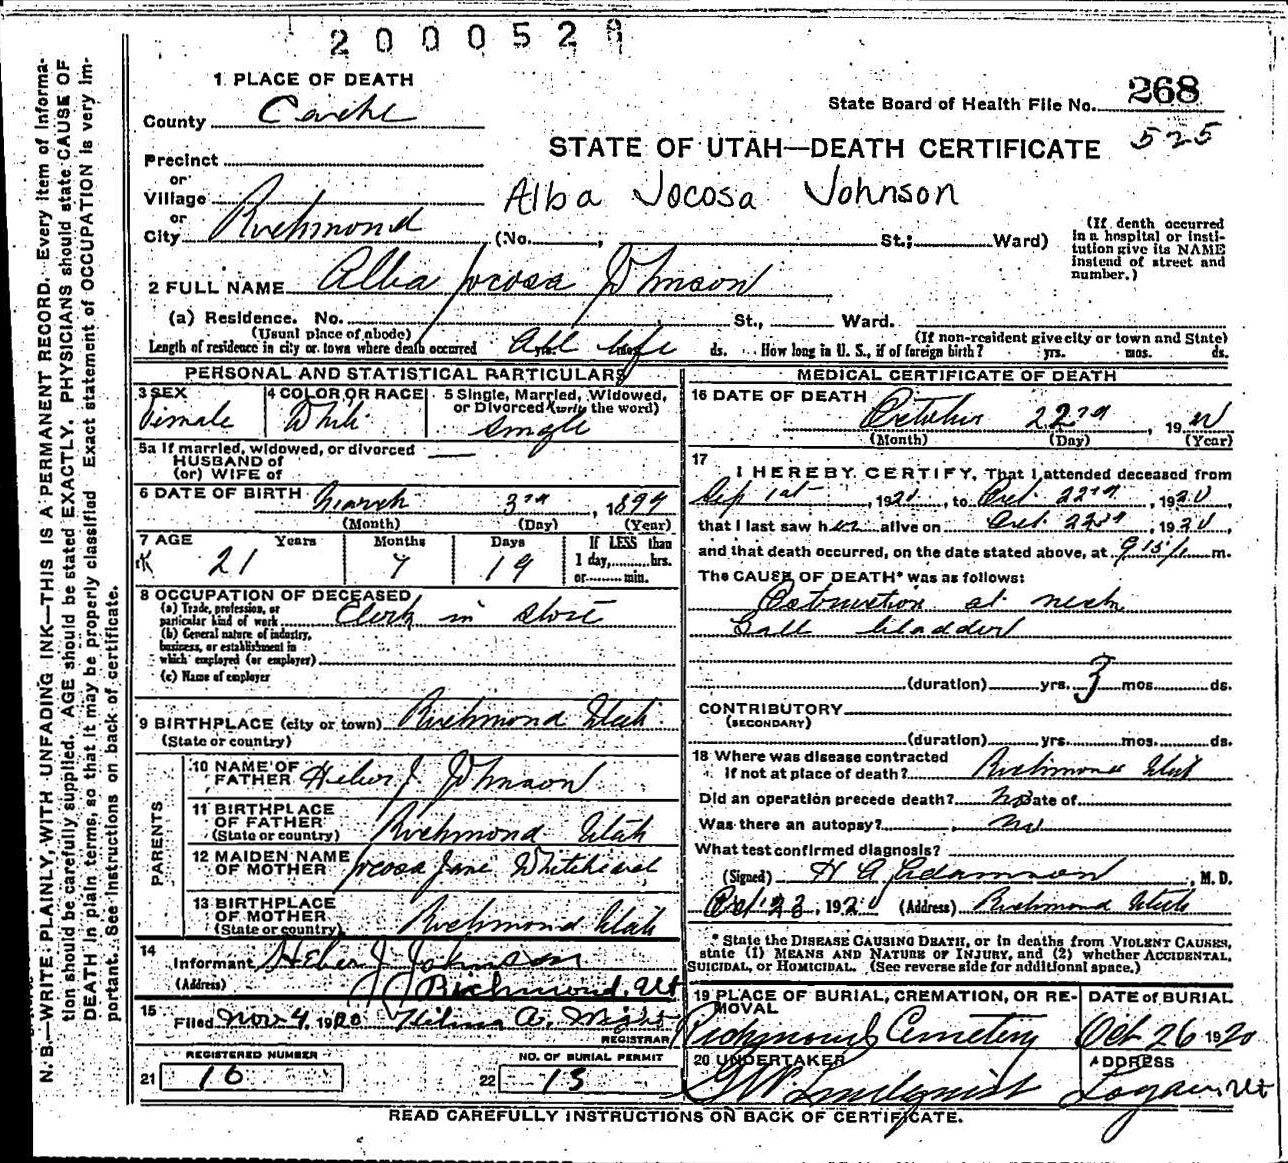 2000528
1 PLACE OF DEATH
County Cache
State Board of Health File No. 268
525
STATE OF UTAH—DEATH CERTIFICATE
Precinct
or
Village
Alba Jocosa Johnson
or
City Richmond (No. , St.; Ward)
(If death occurred in a hospital or institution give its NAME instead of street and number.)
2 FULL NAME Alba Jocosa Johnson
(a) Residence. No. St., Ward.
(Usual place of abode) (If non-resident give city or town and State)
Length of residence in city or town where death occurred All life yrs. mos. ds. How long in U. S., if of foreign birth? yrs. mos. ds.
PERSONAL AND STATISTICAL PARTICULARS
3 SEX Female
4 COLOR OR RACE White
5 Single, Married, Widowed, or Divorced (write the word) Single
5a If married, widowed, or divorced
HUSBAND of
(or) WIFE of
6 DATE OF BIRTH March 3rd, 1899
(Month) (Day) (Year)
7 AGE Years Months Days If LESS than
21 7 19 1 day, hrs.
or min.
8 OCCUPATION OF DECEASED
(a) Trade, profession, or particular kind of work Clerk in store
(b) General nature of industry, business, or establishment in which employed (or employer)
(c) Name of employer
9 BIRTHPLACE (city or town) Richmond Utah
(State or country)
PARENTS
10 NAME OF FATHER Heber J. Johnson
11 BIRTHPLACE OF FATHER (State or country) Richmond Utah
12 MAIDEN NAME OF MOTHER Jocosa Jane Whitehead
13 BIRTHPLACE OF MOTHER (State or country) Richmond Utah
14 Informant Heber J Johnson
(Address) Richmond, Ut
15 Filed Nov 4, 1920 Hilma A.
REGISTRAR
REGISTERED NUMBER
21 16
NO. OF BURIAL PERMIT
22 15
MEDICAL CERTIFICATE OF DEATH
16 DATE OF DEATH October 22nd, 1920
(Month) (Day) (Year)
17
I HEREBY CERTIFY, That I attended deceased from
Sep 1st, 1920, to Oct. 22nd, 1920,
that I last saw her alive on Oct. 22nd, 1920,
and that death occurred, on the date stated above, at 9 15 m.
The CAUSE OF DEATH* was as follows:
Obstruction at neck
Gall bladder
(duration) yrs. 3 mos. ds.
CONTRIBUTORY
(SECONDARY)
(duration) yrs. mos. ds.
18 Where was disease contracted
if not at place of death? Richmond Utah
Did an operation precede death? No Date of
Was there an autopsy? No
What test confirmed diagnosis?
(Signed) H A Adamson, M. D.
Oct. 23, 1920 (Address) Richmond Utah
* State the DISEASE CAUSING DEATH, or in deaths from VIOLENT CAUSES, state (1) MEANS AND NATURE OF INJURY, and (2) whether ACCIDENTAL, SUICIDAL, or HOMICIDAL. (See reverse side for additional space.)
19 PLACE OF BURIAL, CREMATION, OR REMOVAL
Richmond Cemetery
DATE of BURIAL
Oct 26 1920
20 UNDERTAKER
G W Lindquist
ADDRESS
Logan, Ut
READ CAREFULLY INSTRUCTIONS ON BACK OF CERTIFICATE.
N. B.—WRITE PLAINLY, WITH UNFADING INK—THIS IS A PERMANENT RECORD. Every item of information should be carefully supplied. AGE should be stated EXACTLY. PHYSICIANS should state CAUSE OF DEATH in plain terms, so that it may be properly classified. Exact statement of OCCUPATION is very important. See instructions on back of certificate.